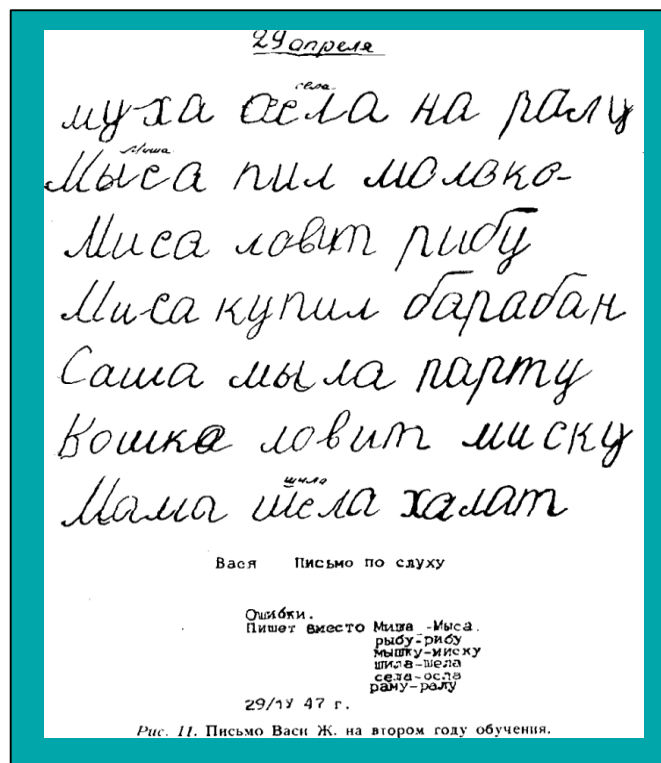 29 апреля
села
муха осла на ралу
Миша
Мыса пил молоко-
Миса ловит рибу
Миса купил барабан
Саша мыла парту
Кошка ловит миску
шила
Мама шела халат
Вася Письмо по слуху
Ошибки.
Пишет вместо Миша -Мыса.
рыбу-рибу
мышку-миску
шила-шела
села-осла
раму-ралу
29/1У 47 г.
Рис. 11. Письмо Васи Ж. на втором году обучения.